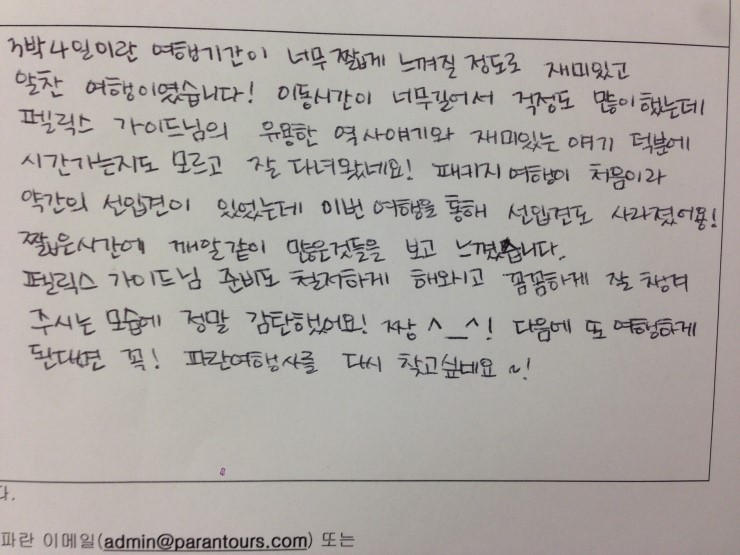 3박4일이란 여행기간이 너무 짧게 느껴질 정도로 재미있고
알찬 여행이였습니다! 이동시간이 너무길어서 걱정도 많이했는데
펠릭스 가이드님의 유용한 역사얘기와 재미있는 얘기 덕분에
시간가는지도 모르고 잘 다녀왔네요! 패키지여행이 처음이라
약간의 선입견이 있었는데 이번 여행을 통해 선입견도 사라졌어용!
짧은시간에 깨알같이 많은것들을 보고 느꼈습니다.
펠릭스 가이드님 준비도 철저하게 해오시고 꼼꼼하게 잘 챙겨
주시는 모습에 정말 감탄했었어요! 짱 ^__^! 다음에 또 여행하게
된다면 꼭! 파란여행사를 다시 찾고싶네요~!
다.
파란 이메일(admin@parantours.com) 또는